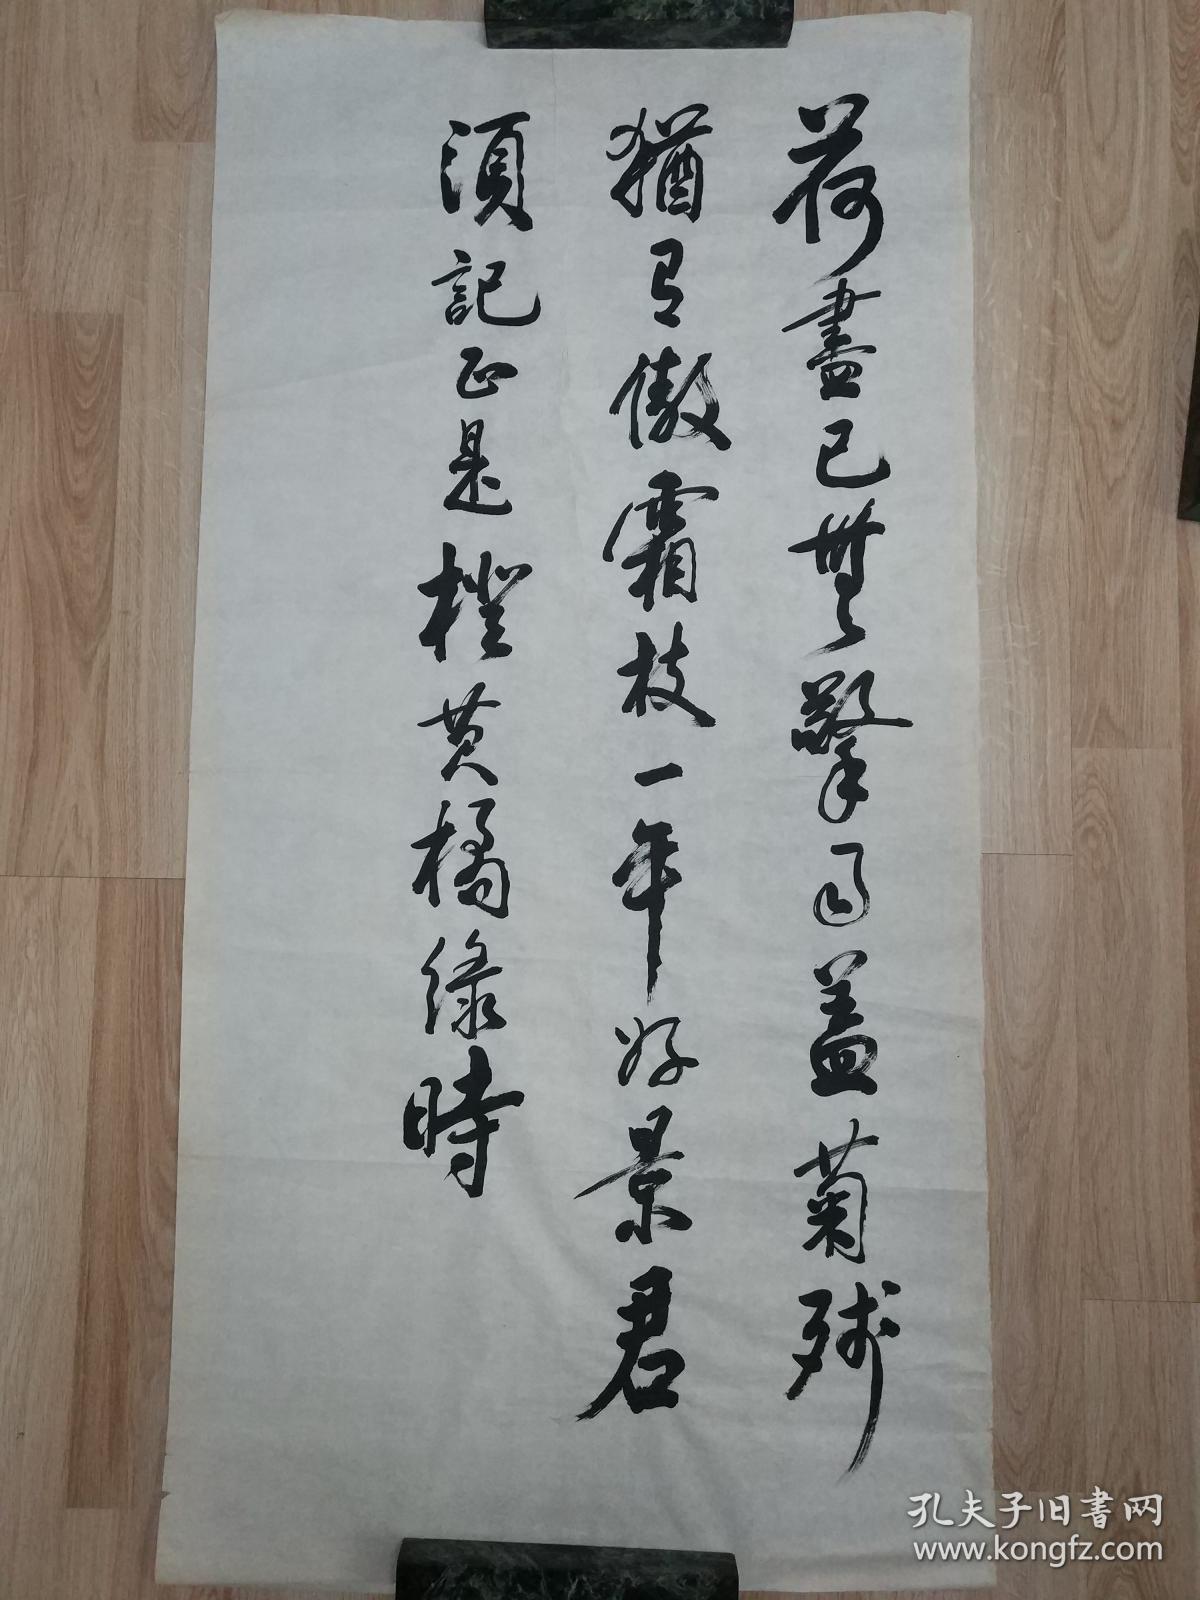 荷盡已無擎雨蓋菊殘
猶有傲霜枝一年好景君
須記正是橙黄橘緑時
孔夫子旧書网
www.kongfz.com